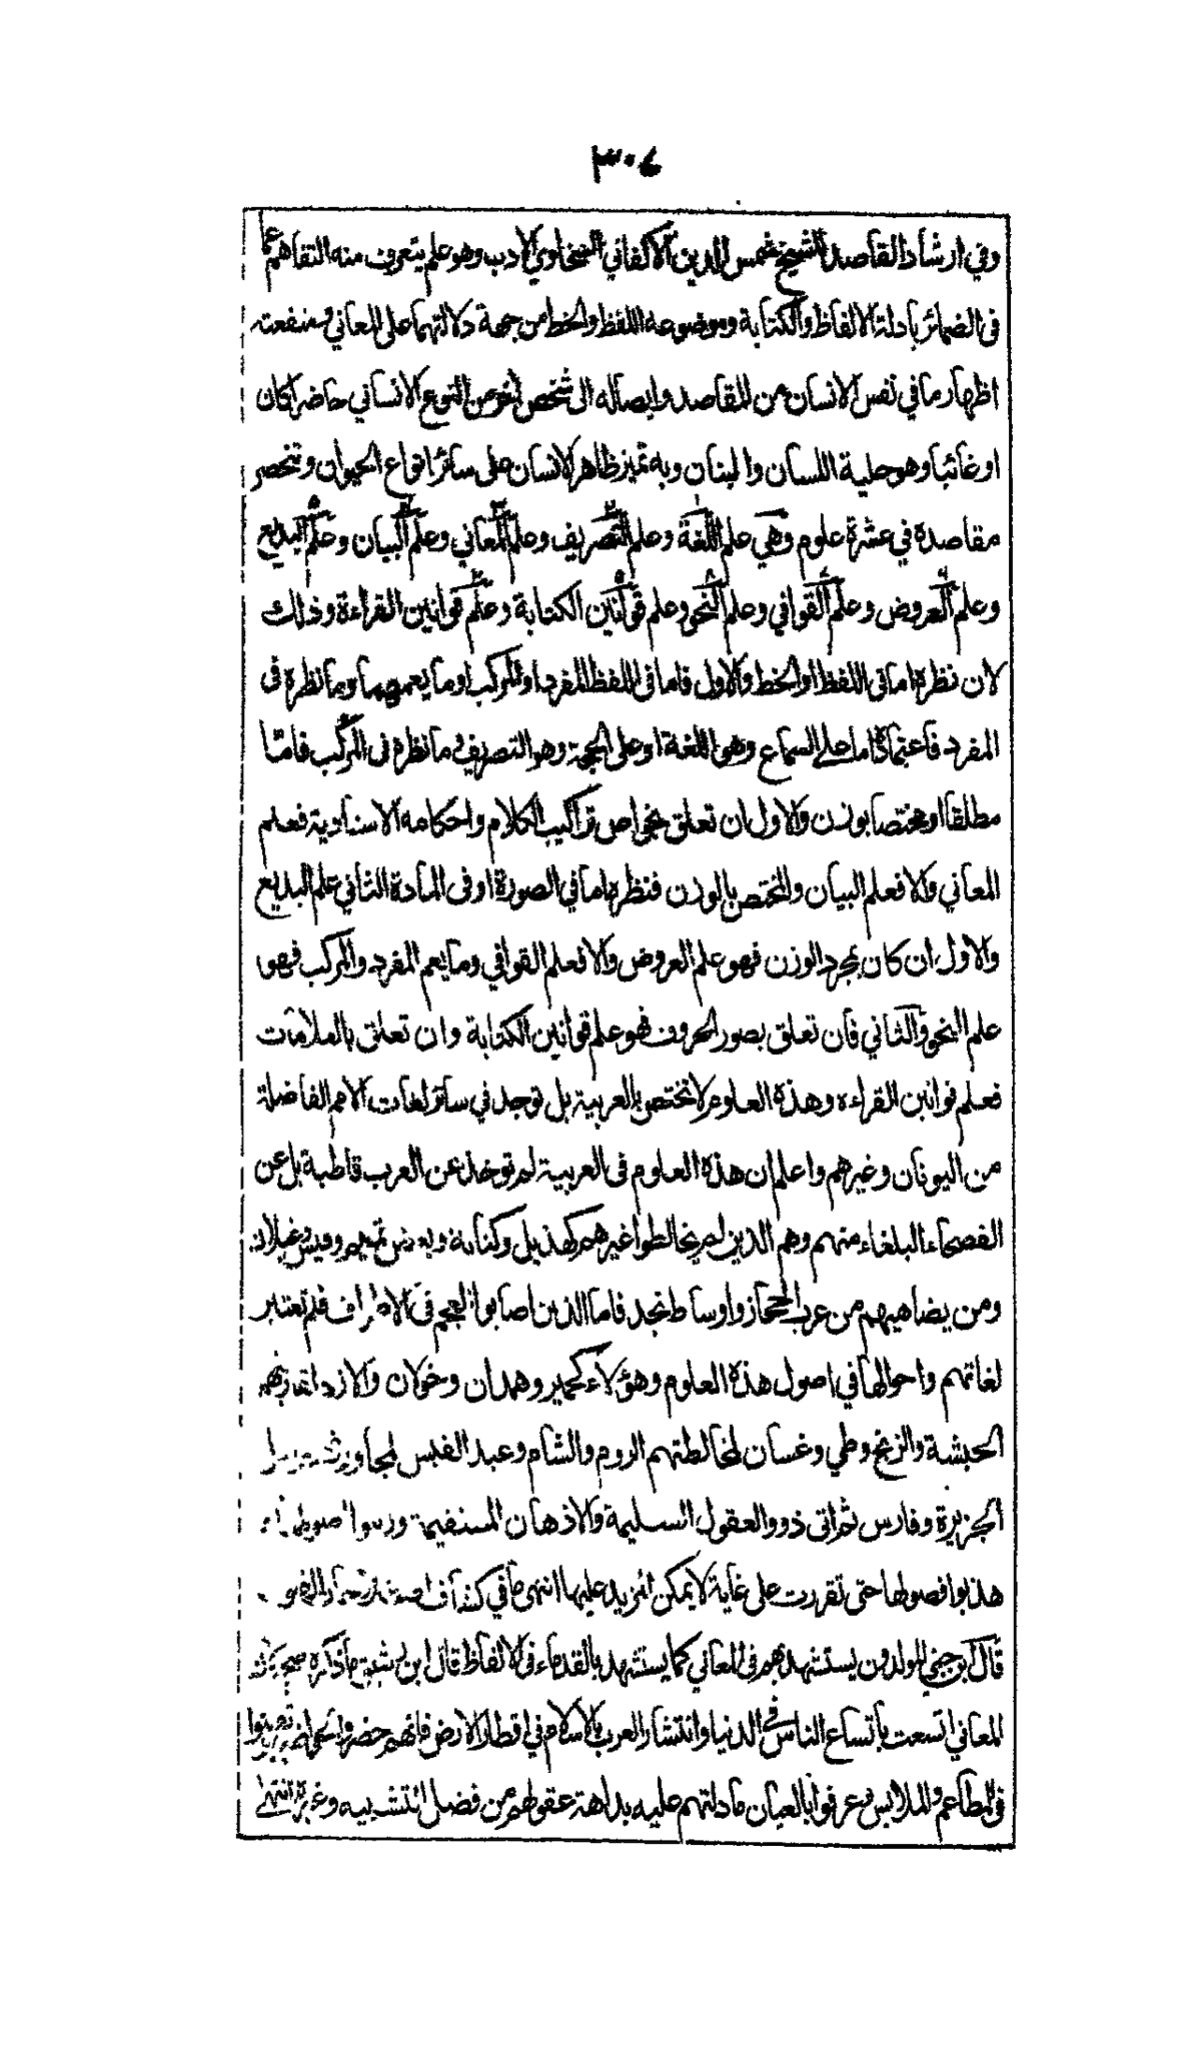 ٣٠٤
وفي ارشاد القاصد للشيخ شمس الدين الاكفاني السخاوي الادب وهو علم يتعرف منه التفاهم عما
في الضمائر بادلة الالفاظ والكتابة وموضوعه اللفظ والخط من جهة دلالتهما على المعاني ومنفعته
اظهار ما في نفس الانسان من المقاصد وايصاله الى شخص اخر من النوع الانساني حاضرا كان
او غائبا وهو حلية اللسان والبنان وبه تميز ظاهر الانسان على سائر انواع الحيوان وتنحصر
مقاصده في عشرة علوم وهي علم اللغة وعلم التصريف وعلم المعاني وعلم البيان وعلم البديع
وعلم العروض وعلم القوافي وعلم النحو وعلم قوانين الكتابة وعلم قوانين القراءة وذلك
لان نظره اما في اللفظ او الخط والاول فاما في اللفظ المفرد او المركب او ما يعمهما وما نظره في
المفرد فاعتماده اما على السماع وهو اللغة او على الحجة وهو التصريف وما نظره في المركب فاما
مطلقا او مختصا بوزن والاول ان تعلق بخواص تراكيب الكلام واحكامه الاسنادية فعلم
المعاني والا فعلم البيان والمختص بالوزن فنظره اما في الصورة او في المادة الثاني علم البديع
والاول ان كان بمجرد الوزن فهو علم العروض والا فعلم القوافي وما يعم المفرد والمركب فهو
علم النحو والثاني فان تعلق بصور الحروف فهو علم قوانين الكتابة وان تعلق بالعلامات
فعلم قوانين القراءه وهذه العلوم لا تختص بالعربية بل توجد في سائر لغات الامم الفاضلة
من اليونان وغيرهم واعلم ان هذه العلوم في العربية لم توخذ عن العرب قاطبة بل عن
الفصحاء البلغاء منهم وهم الذين لم يخالطوا غيرهم كهذيل وكنانة وبعض تميم وقيس وغيلان
ومن يضاهيهم من عرب الحجاز واوساط نجد فاما الذين اصابوا العجم في الاطراف فلم تعتبر
لغاتهم واحوالها في اصول هذه العلوم وهؤلاء كحمير وهمدان وخولان والازد لمقاربتهم
الحبشة والزنج وطي وغسان لمخالطتهم الروم والشام وعبد القيس لمجاورتهم
الجزيرة وفارس ثم اتى ذوو العقول السليمة والاذهان المستقيمة ورتبوا اصولها
هذبوا فصولها حتى تقررت على غاية لا يمكن المزيد عليها انتهى ما في كشاف
قال ابن جني المولدون يستشهد بهم في المعاني كما يستشهد بالقدماء في الالفاظ قال ابن رشيق ما ذكره صحيح
المعاني اتسعت باتساع الناس في الدنيا وانتشار العرب بالاسلام في اقطار الارض فانهم حضروا
في المطاعم والملابس وعرفوا بالعيان ما دلتهم عليه بداهة عقولهم من فضل التشبيه وغيره انتهى